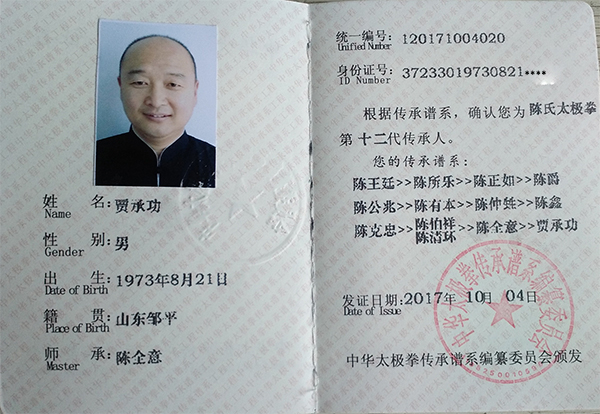 姓 名：贾承功
Name
性 别：男
Gender
出 生：1973年8月21日
Date of Birth
籍 贯：山东邹平
Place of Birth
师 承：陈全意
Master
统一编号：120171004020
Unified Number
身份证号：37233019730821****
ID Number
根据传承谱系，确认您为陈氏太极拳
第十二代传承人。
您的传承谱系：
陈王廷>>陈所乐>>陈正如>>陈爵
陈公兆>>陈有本>>陈仲甡>>陈鑫
陈克忠>>陈伯祥 陈清环>>陈全意>>贾承功
发证日期：2017年 10月 04日
Date of Issue
中华太极拳传承谱系编纂委员会颁发
中华太极拳传承谱系编纂委员会